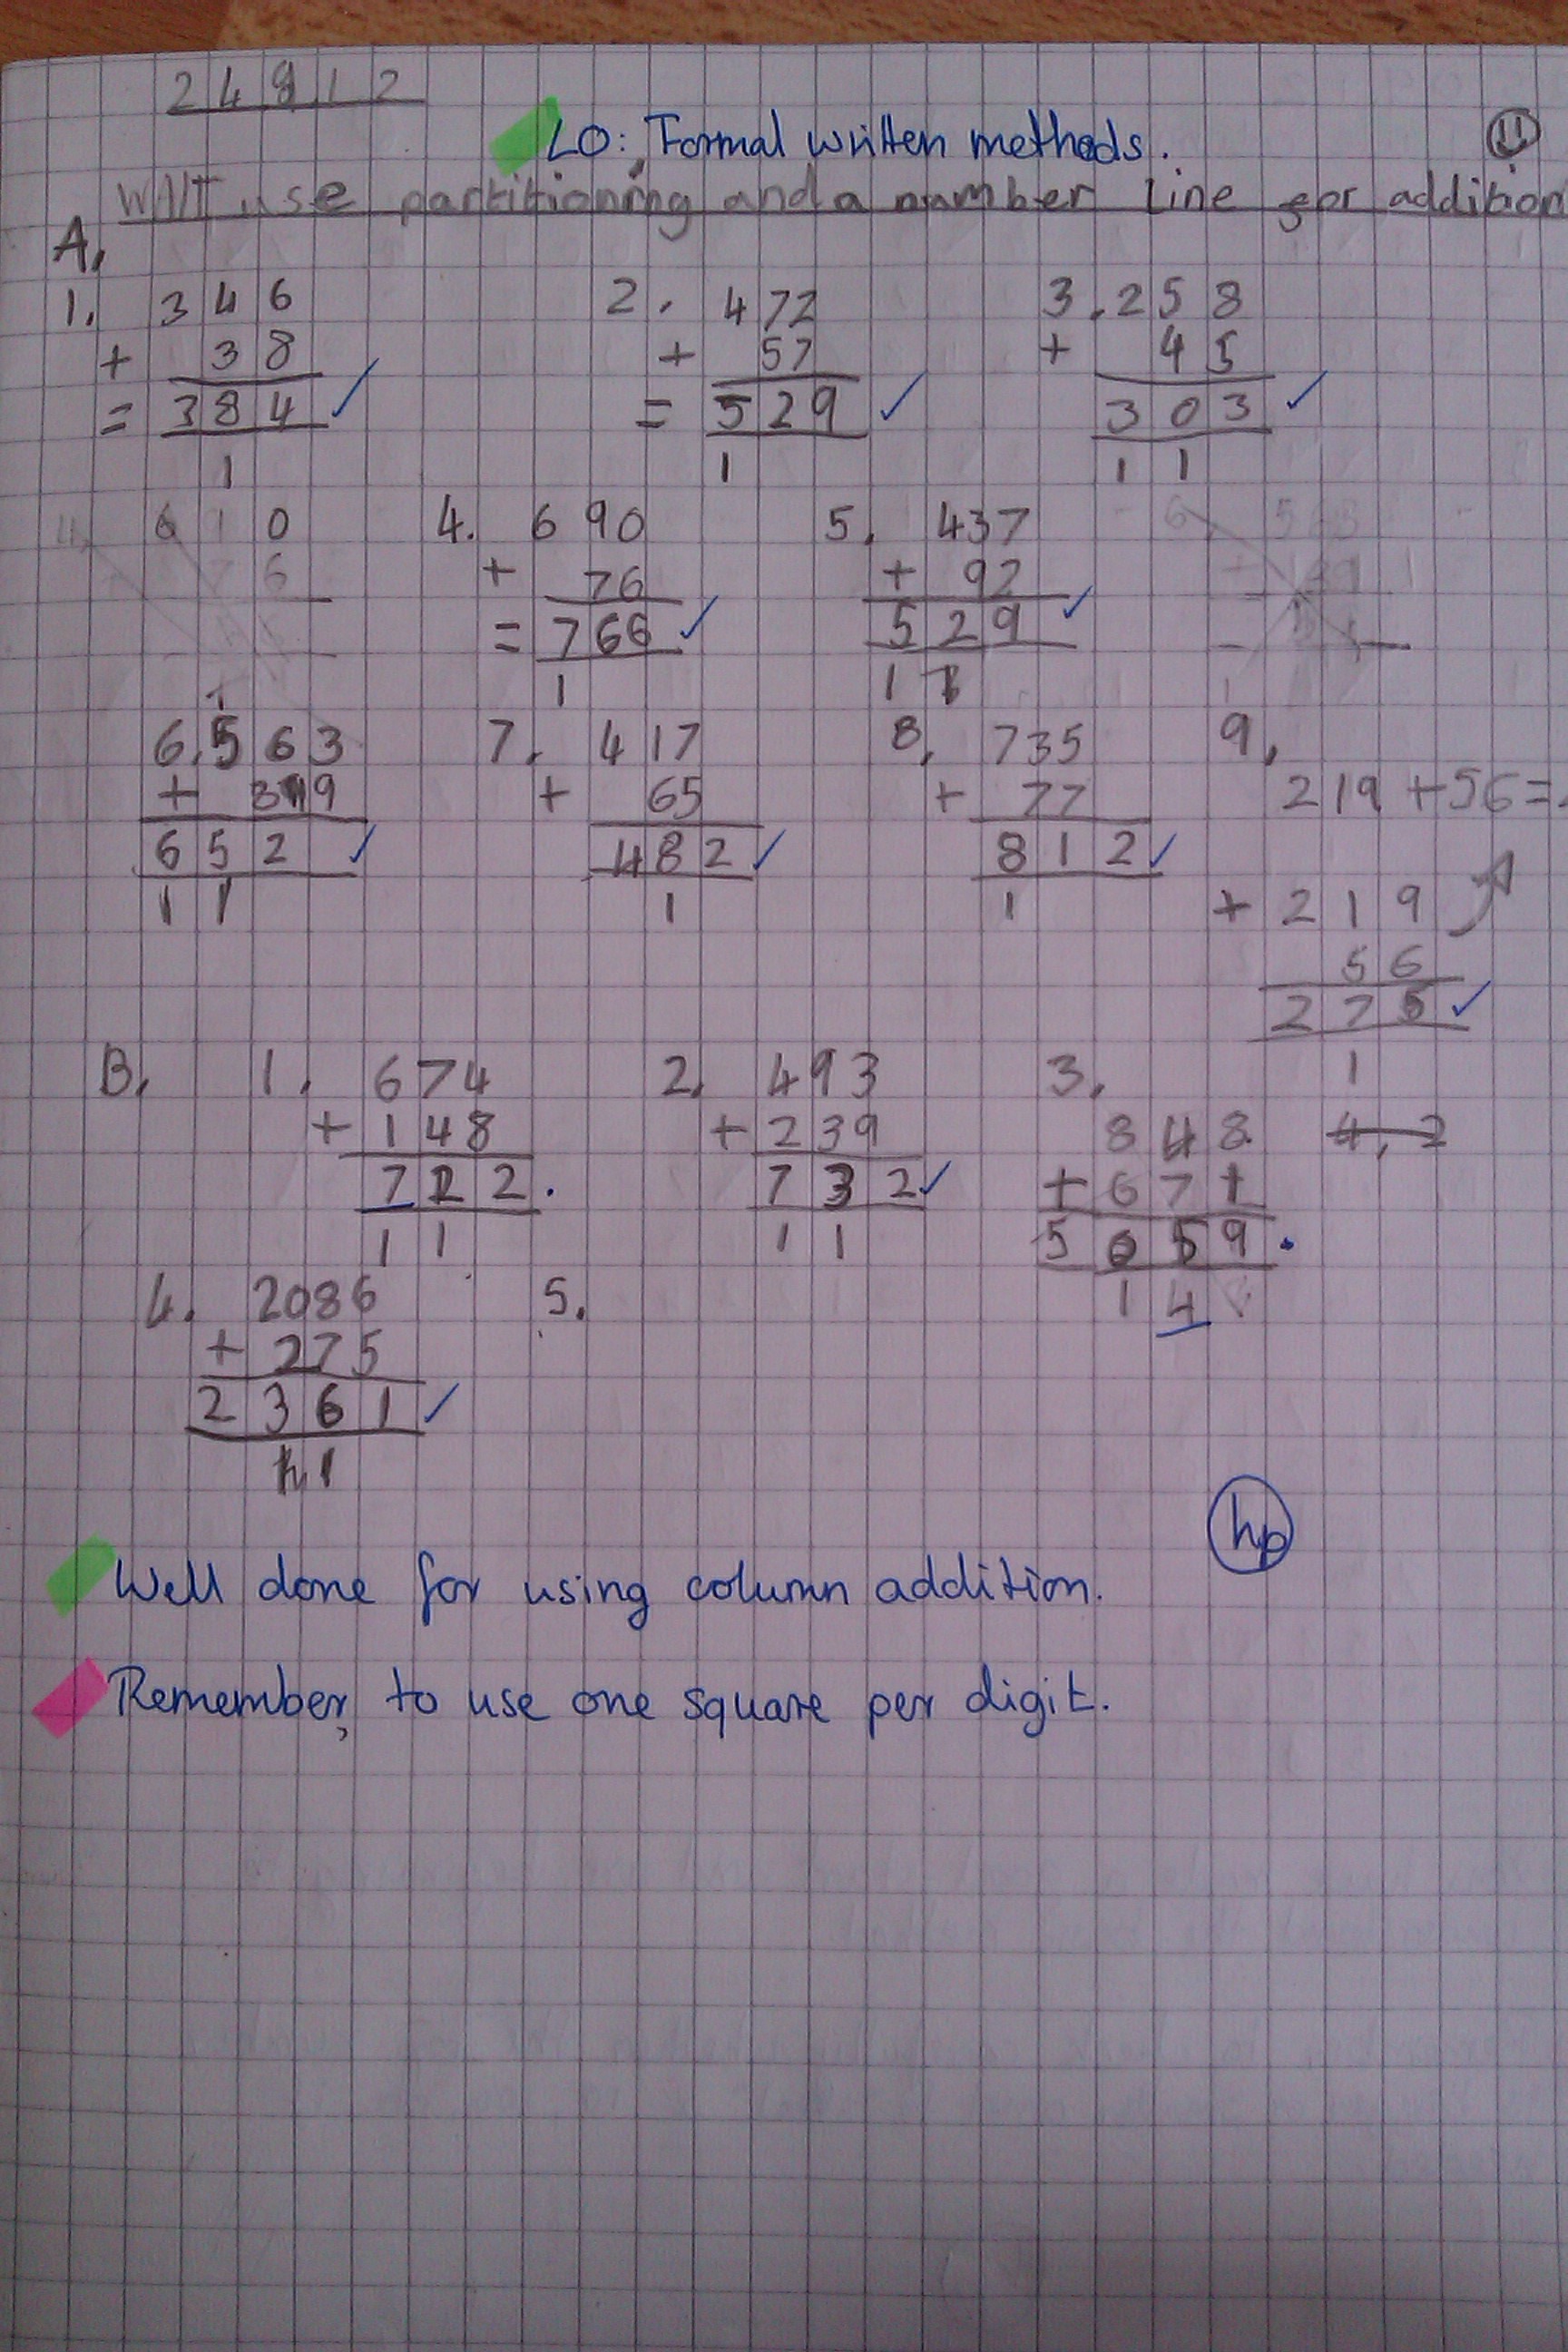 24912
LO: Formal written methods.
WALT use partitioning and a number line for addition
A.
1. 346
+ 38
= 384
1
2. 472
+ 57
= 529
1
3. 258
+ 45
303
1 1
4. 690
+ 76
= 766
1
5. 437
+ 92
529
1 1
6. 563
+ 89
652
1 1
7. 417
+ 65
482
1
8. 735
+ 77
812
1
9.
219 + 56 =
+ 219
56
275
1
B.
1. 674
+ 148
722.
1 1
2. 493
+ 239
732
1 1
3.
848
+ 671
5059.
1 4
4. 2
4. 2086
+ 275
2361
1 1
5.
hp
Well done for using column addition.
Remember, to use one square per digit.